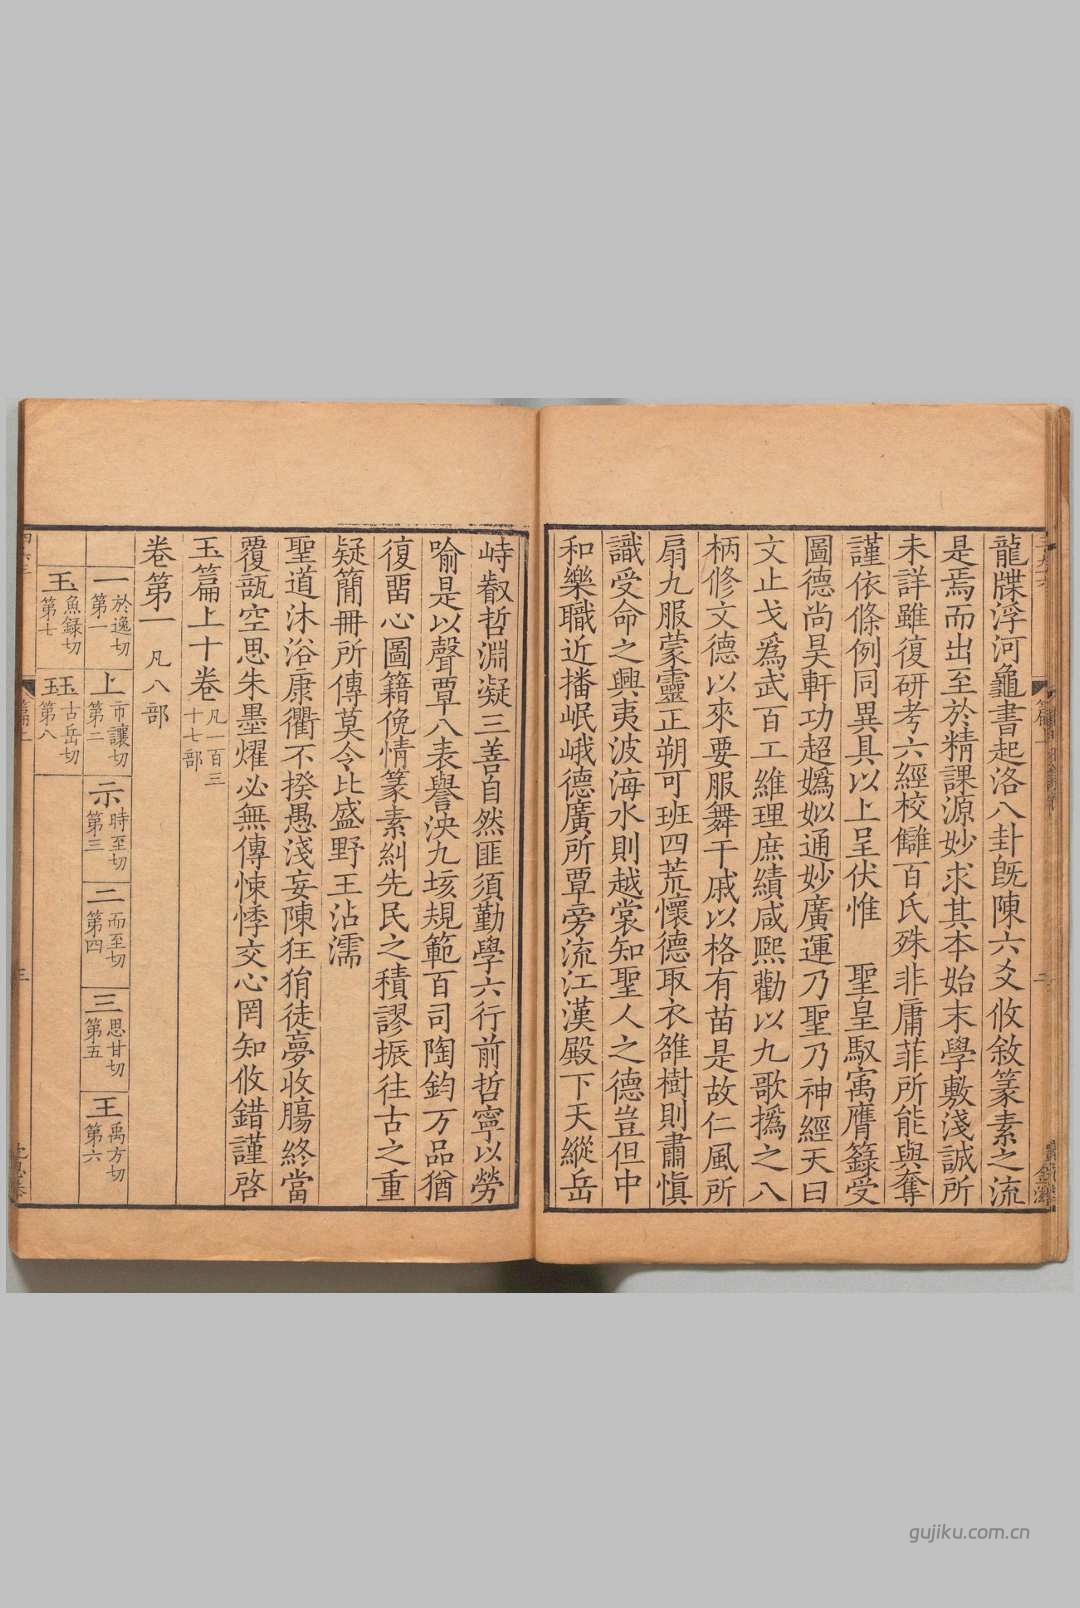 龍牒浮河龜書起洛八卦旣陳六爻攸敘篆素之流
是焉而出至於精課源妙求其本始末學敷淺誠所
未詳雖復研考六經校讎百氏殊非庸菲所能與奪
謹依條例同異具以上呈伏惟 聖皇馭㝢膺籙受
圖德尚昊軒功超嬀姒通妙廣運乃聖乃神經天曰
文止戈爲武百工維理庶績咸熙勸以九歌撝之八
柄修文德以來要服舞干戚以格有苗是故仁風所
扇九服蒙靈正朔可班四荒懷德取衣雒樹則肅愼
識受命之興夷波海水則越裳知聖人之德豈但中
和樂職近播岷峨德廣所覃旁流江漢殿下天縱岳
峙叡哲淵凝三善自然匪須勤學六行前哲寧以勞
喻是以聲覃八表譽泱九垓規範百司陶鈞万品猶
復畱心圖籍俛情篆素糾先民之積謬振往古之重
疑簡冊所傳莫令比盛野王沾濡
聖道沐浴康衢不揆愚淺妄陳狂狷徒夢收腸終當
覆瓿空思朱墨燿必無傳悚悸交心罔知攸錯謹啓
玉篇上十卷 凡一百三十七部
卷第一 凡八部
一 於逸切 第一 上 市讓切 第二 示 時至切 第三 二 而至切 第四 三 思甘切 第五 王 禹方切 第六
玉 魚録切 第七 玨 古岳切 第八
三
gujiku.com.cn